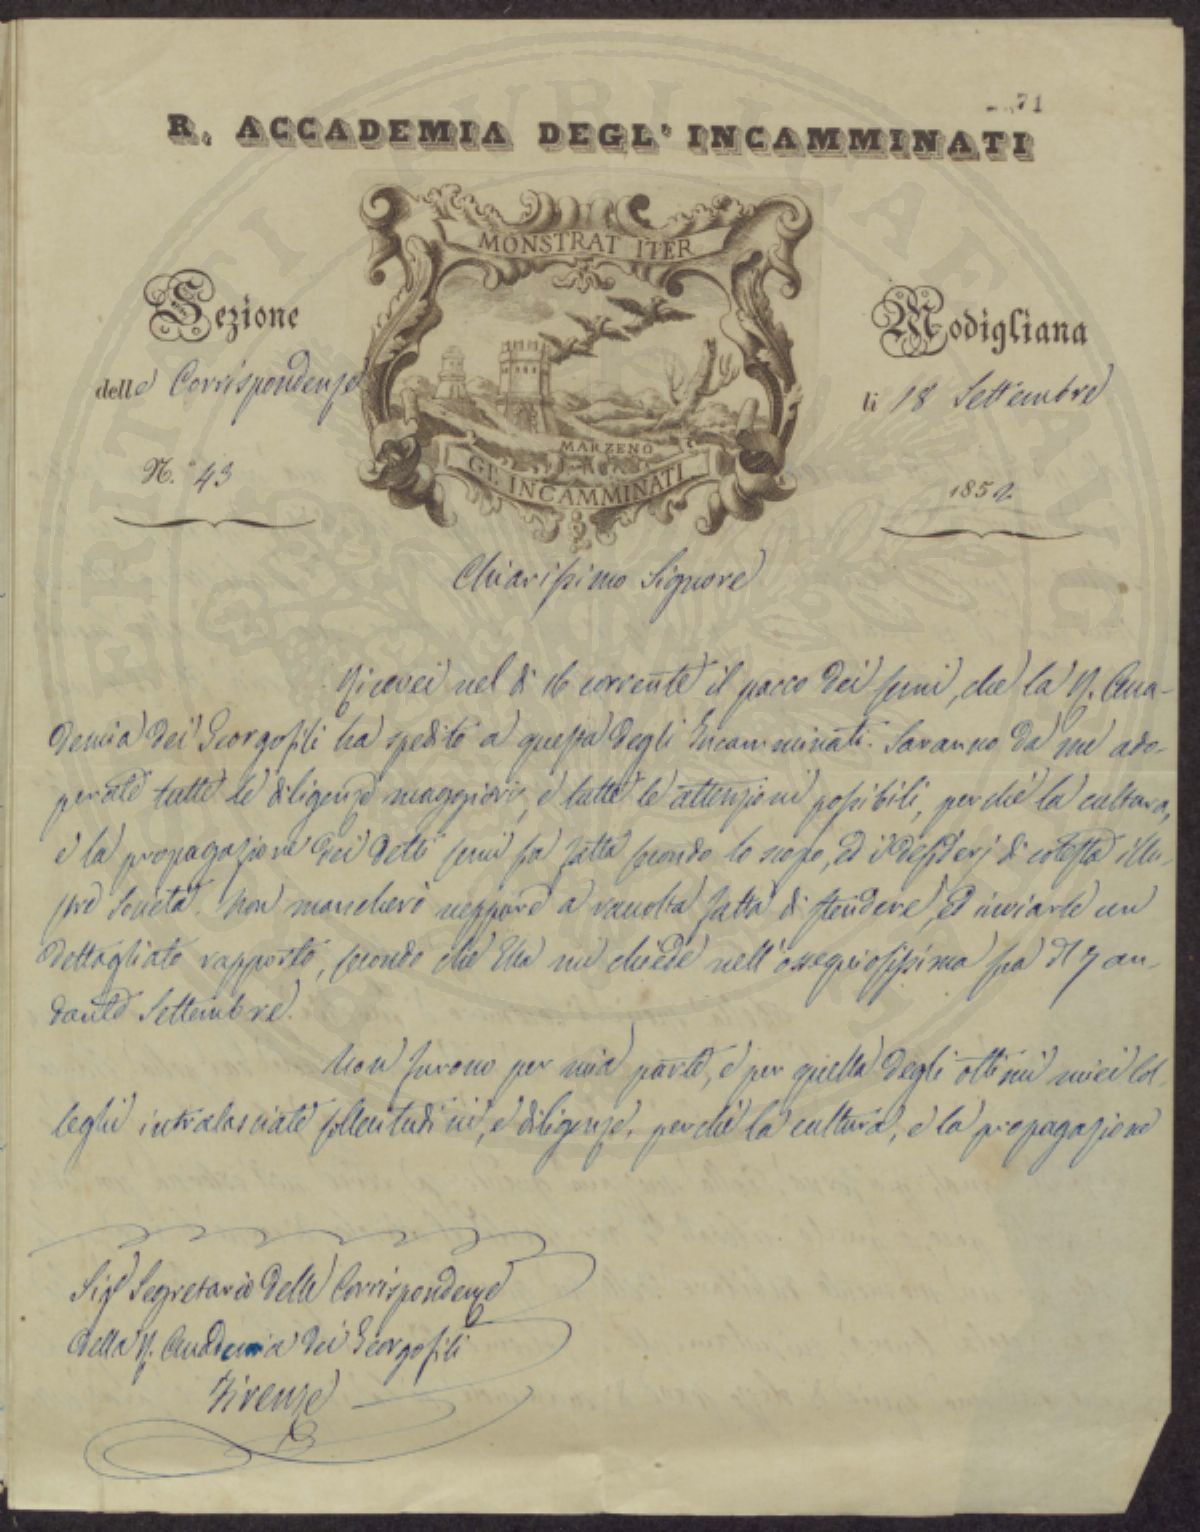 71
R. ACCADEMIA DEGL' INCAMMINATI
MONSTRAT ITER
Sezione
delle Corrispondenze
N.° 43
Modigliana
li 18 Settembre
1852
MARZENO
GL' INCAMMINATI
Chiarissimo Signore
Ricevei nel dì 16 corrente il pacco dei semi, che la R. Acca-
demia dei Georgofili ha spedito a questa degli Incamminati. Saranno da me ado-
perate tutte le diligenze maggiori, e tutte le attenzioni possibili, perchè la cultura,
e la propagazione dei detti semi sia fatta secondo lo scopo, ed i desiderj di cotesta illu-
stre Società. Non mancherò neppure a raccolta fatta di stendere, ed inviarle un
dettagliato rapporto, secondo che Ella mi chiede nell'ossequiosissima sua del 7 an-
dante Settembre.
Non furono per mia parte, e per quella degli ottimi miei Col-
leghi intralasciate sollecitudini, e diligenze, perchè la cultura, e la propagazione
Sigr Segretario delle Corrispondenze
della R. Accademia dei Georgofili
Firenze